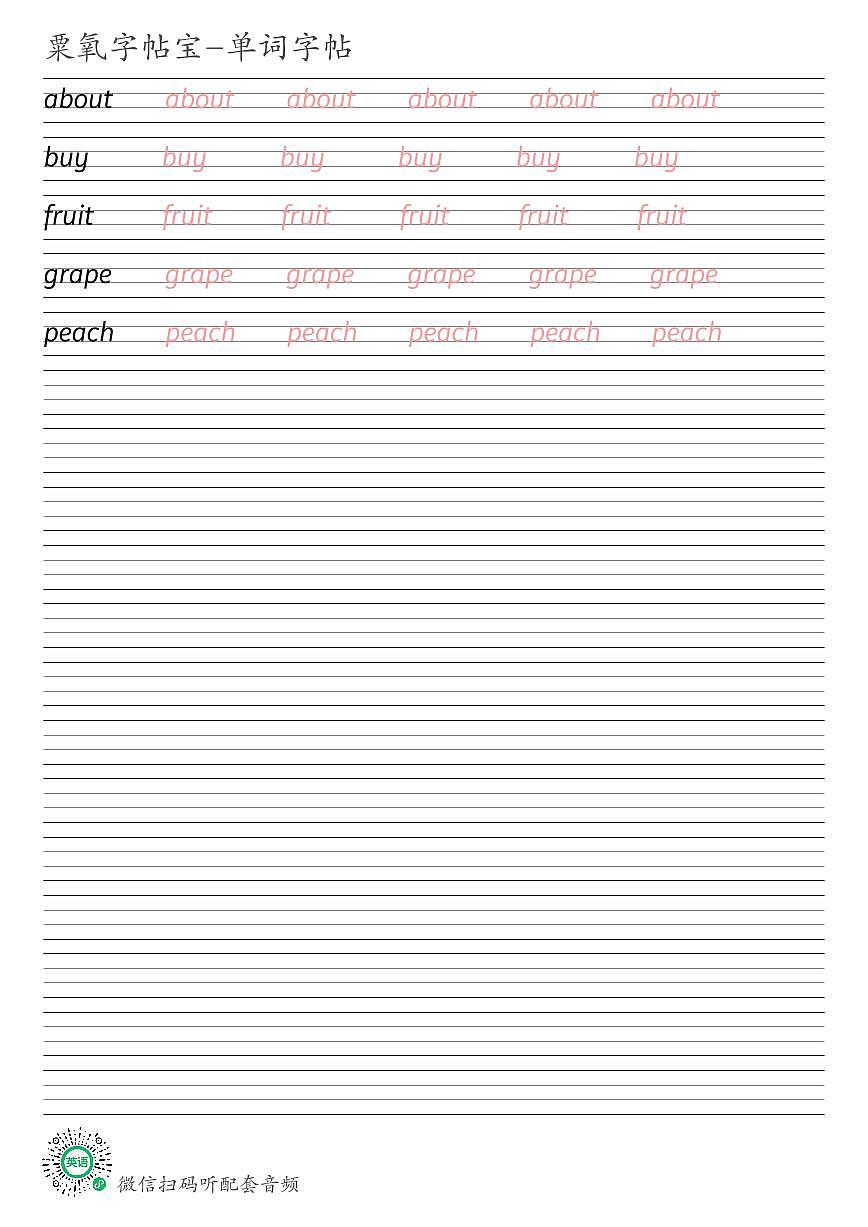 粟氧字帖宝-单词字帖
about about about about about about
buy buy buy buy buy buy
fruit fruit fruit fruit fruit fruit
grape grape grape grape grape grape
peach peach peach peach peach peach
英语
微信扫码听配套音频